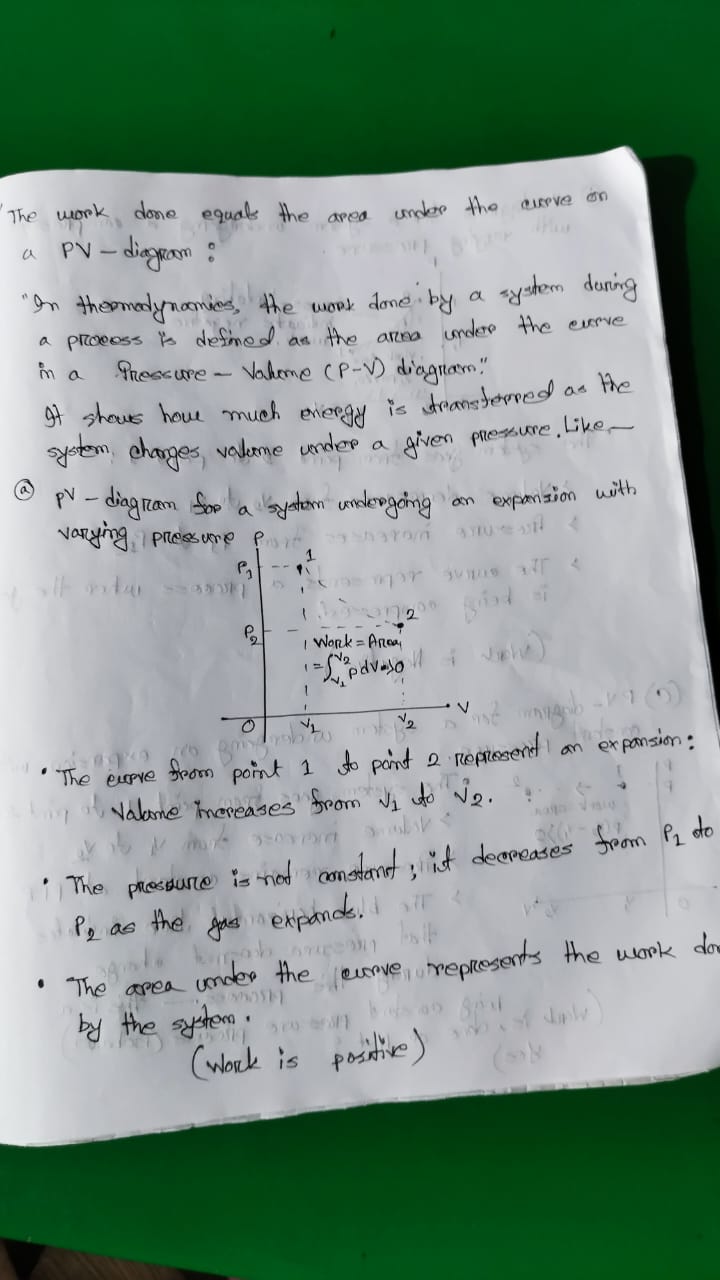 "The work done equals the area under the curve on
a PV-diagram:
"In thermodynamics, the work done by a system during
a process is defined as the area under the curve
in a Pressure - Valume (P-V) diagram."
It shows how much energy is transferred as the
system, changes, valume under a given pressure. Like—
ⓐ PV-diagram for a system undergoing an expansion with
varying pressure
P
P1
1
P2
2
Work = Area
= ∫V1V2 pdv>0
O V1 V2 V
• The curve from point 1 to point 2 represent an expansion:
Valume increases from V1 to V2.
• The pressure is not constant; it decreases from P1 to
P2 as the gas expands.
• The area under the curve represents the work do
by the system.
(Work is positive)